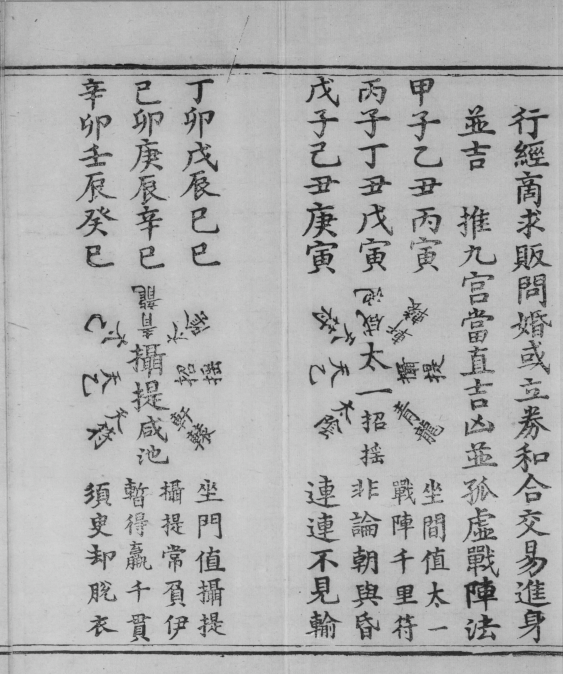 行經商求販問婚或立券和合交易進身
並吉　推九宮當直吉凶並孤虛戰陣法
甲子乙丑丙寅
丙子丁丑戊寅
戊子己丑庚寅
軒轅
攝提
青龍
咸池
太一
招搖
天符
天乙
太陰
坐間值太一
戰陣千里待
非論朝與昏
連連不見輸
丁卯戊辰己巳
己卯庚辰辛巳
辛卯壬辰癸巳
招搖
軒轅
青龍
攝提
咸池
天乙
天符
坐門值攝提
攝提常負伊
暫得贏千貫
須臾却脫衣